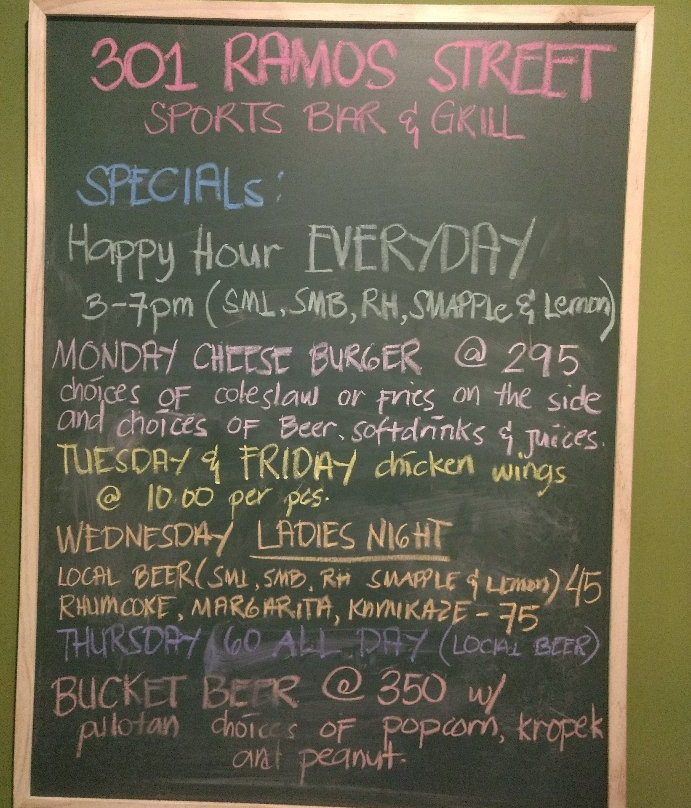 301 RAMOS STREET
SPORTS BAR & GRILL
SPECIALs:
Happy Hour EVERYDAY
3-7pm (SML, SMB, RH, SMAPPLe & Lemon)
MONDAY CHEESE BURGER @ 295
choices OF coleslaw or Fries on the side
and choices OF Beer, softdrinks & juices.
TUESDAY & FRIDAY chicken wings
@ 10.00 per pcs.
WEDNESDAY LADIES NIGHT
LOCAL BEER (SML, SMB, RH SMAPPLE & LEmon) 45
RHUMCOKE, MARGARITA, KAMIKAZE - 75
THURSDAY 60 ALL DAY (LOCAL BEER)
BUCKET BEER @ 350 w/
pulotan choices OF popcorn, kropek
and peanut.